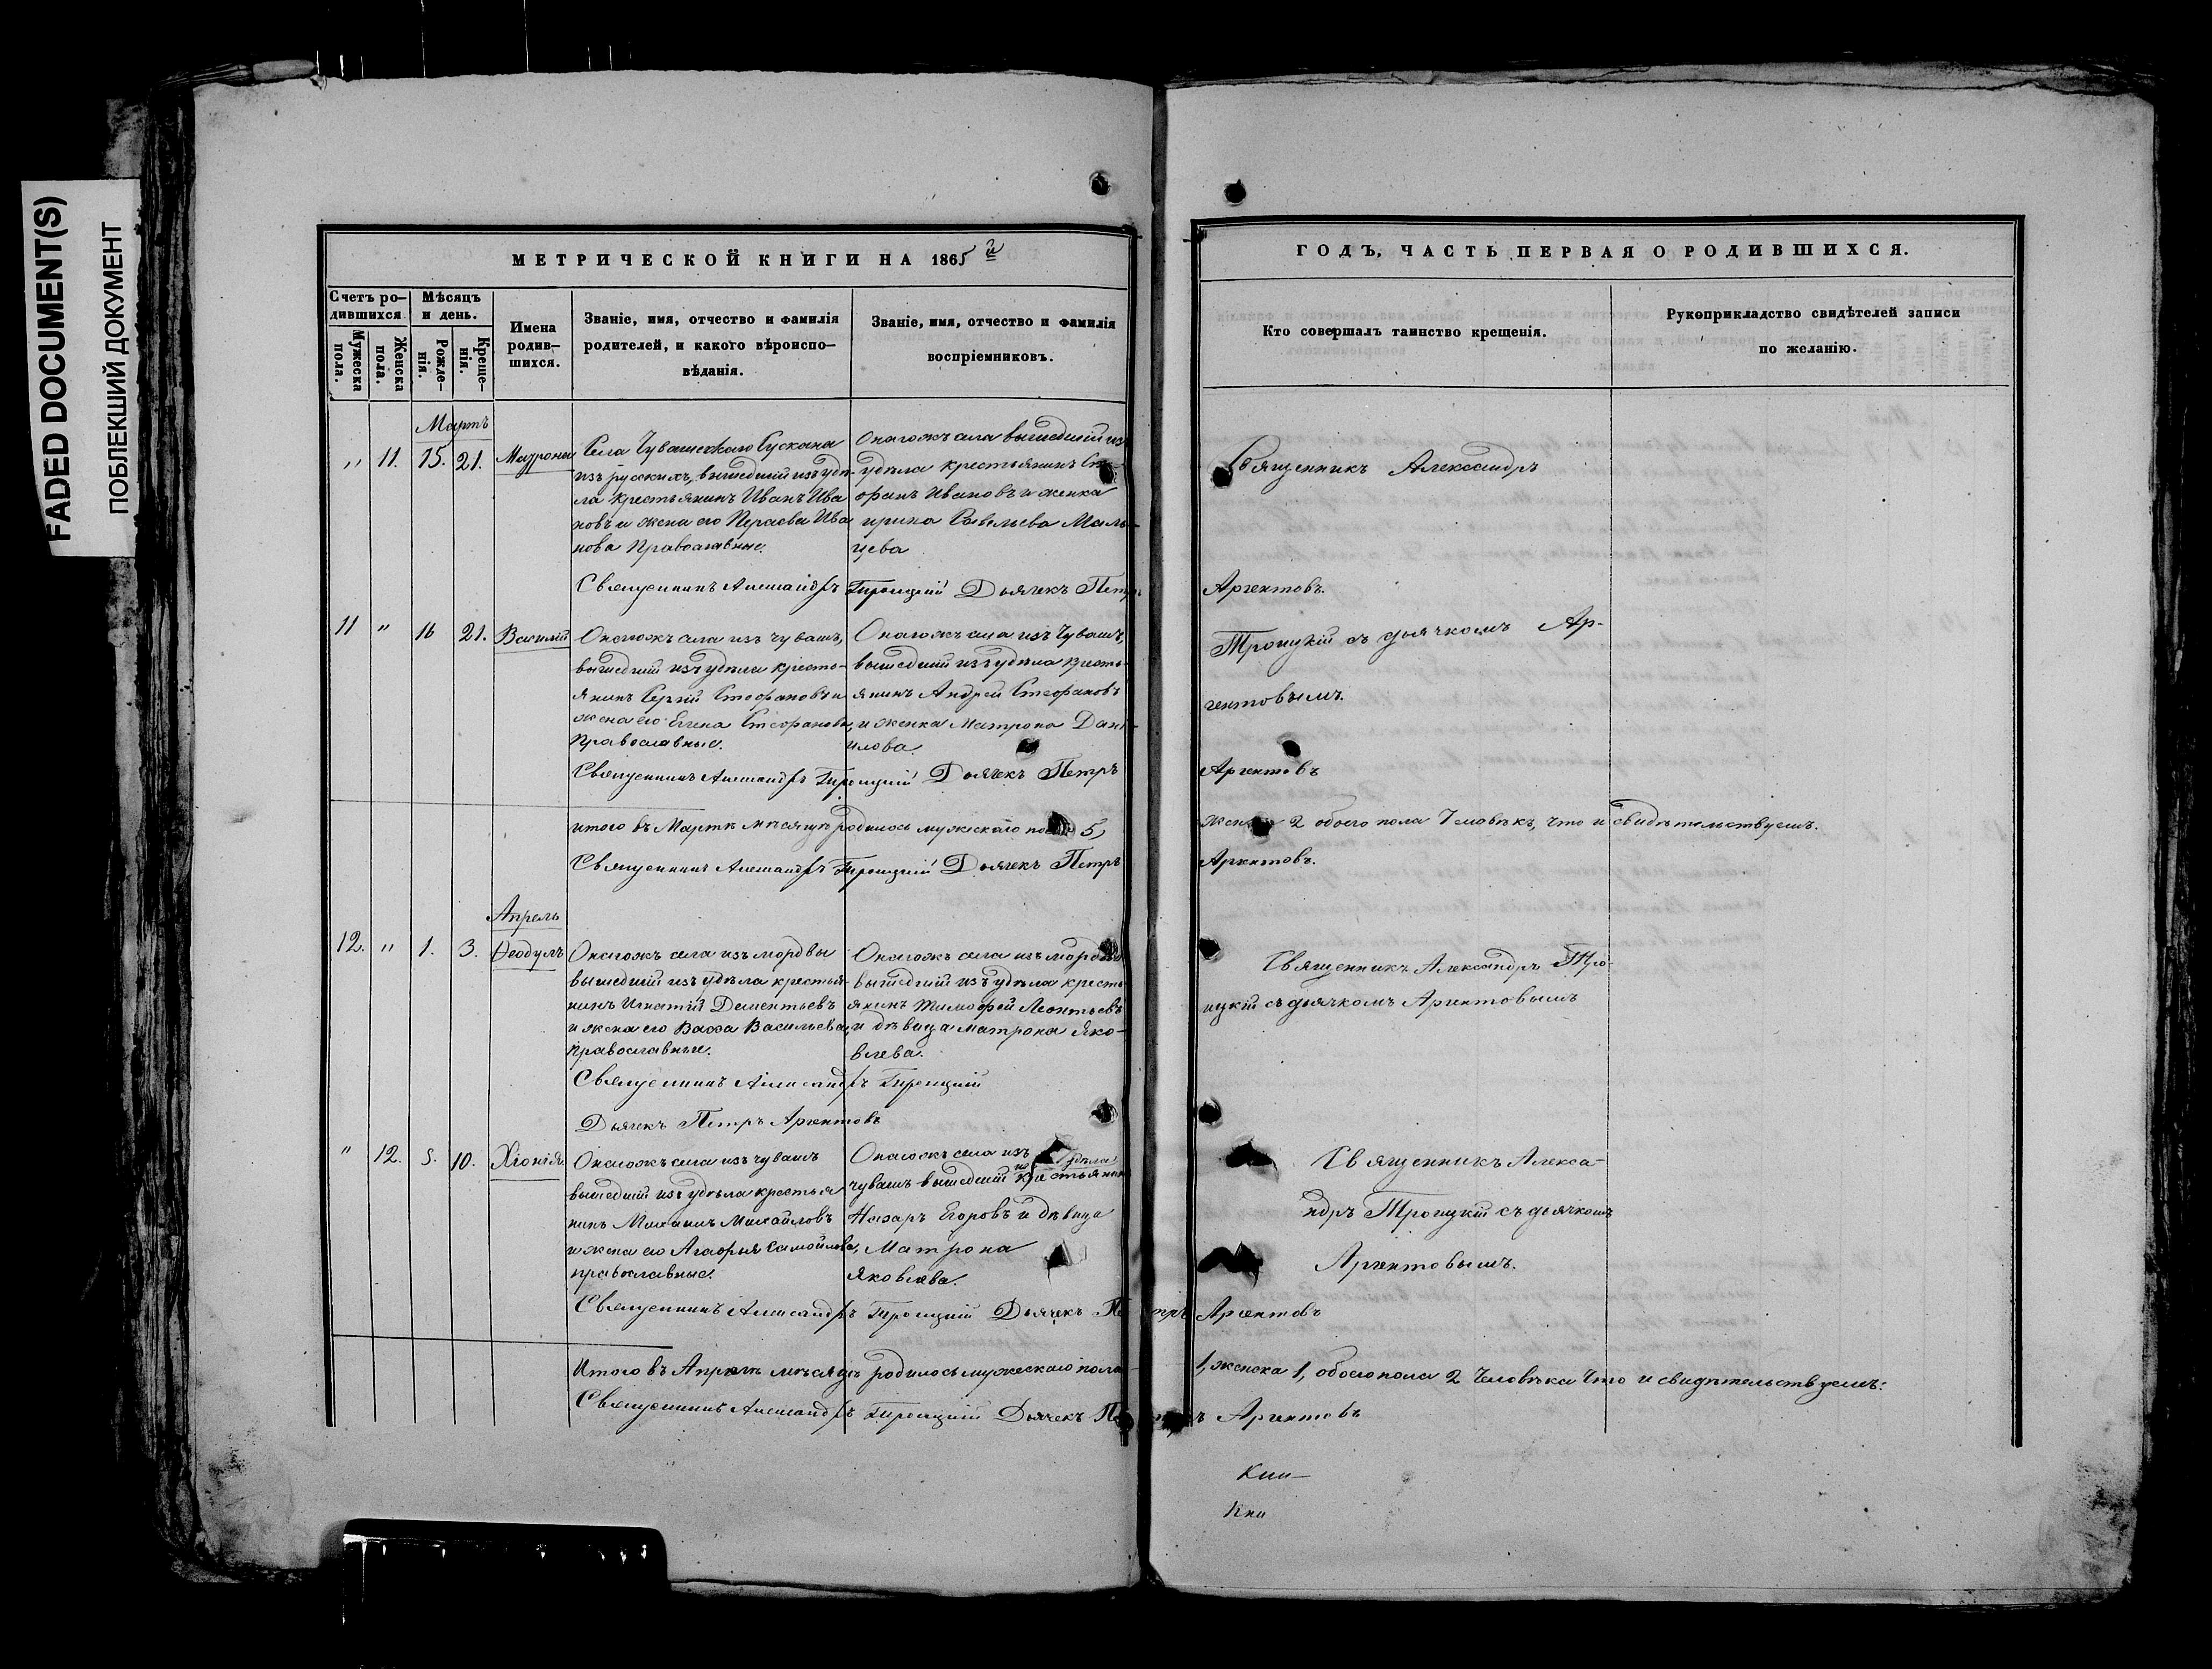 FADED DOCUMENT(S)
ПОБЛЕКШИЙ ДОКУМЕНТ
МЕТРИЧЕСКОЙ КНИГИ НА 1865 й
ГОДЪ, ЧАСТЬ ПЕРВАЯ О РОДИВШИХСЯ.
Счетъ ро-
дившихся
Мужеска
пола.
Женска
пола.
Мѣсяцъ
и день.
Рожде-
нія.
Креще-
нія.
Имена
родив-
шихся.
Званіе, имя, отчество и фамилія
родителей, и какого вѣроиспо-
вѣданія.
Званіе, имя, отчество и фамилія
воспріемниковъ.
Кто совершалъ таинство крещенія.
Рукоприкладство свидѣтелей записи
по желанію.
Мартъ
" 11. 15. 21. Матрона
Села Чувашскаго Сускана
изъ русскихъ, вышедшій изъ удѣ-
ла крестьянинъ Иванъ Ива
новъ и жена его Параскева Ива
нова Православные.
Онагожъ села вышедшій из
удѣла крестьянинъ Сте-
фанъ Ивановъ и женка
Ирина Савельева Маль-
цева
Священникъ Александръ
Священникъ Александръ Троицкій Дьячекъ Петръ
Аргентовъ.
11 " 16 21. Василій
Онагожъ села изъ чувашъ,
вышедшій изъ удѣла кресть-
янинъ Сергій Стефановъ и
жена его Елена Стефанова,
Православные.
Онагожъ села изъ Чувашъ,
вышедшій изъ удѣла кресть-
янинъ Андрей Стефановъ
и женка Матрона Дані-
илова.
Троицкій съ дьячкомъ Ар-
гентовымъ.
Священникъ Александръ Троицкій Дьячекъ Петръ
Аргентовъ
итого въ Мартѣ мѣсяцѣ родилось мужескаго пола 5,
женска 2 обоего пола 7 человѣкъ, что и свидѣтельствуемъ.
Священникъ Александръ Троицкій Дьячекъ Петръ
Аргентовъ.
Апрель
12. " 1. 3. Ѳеодулъ
Онагожъ села изъ мордвы
вышедшій изъ удѣла крестья-
нинъ Игнатій Дементьевъ
и жена его Васса Васильева,
православные.
Онагожъ села изъ мордвы
вышедшій изъ удѣла кресть
янинъ Тимофей Леонтьевъ
и дѣвица Матрона Яко-
влева.
Священникъ Александръ Тро-
ицкій съ дьячкомъ Аргентовымъ
Священникъ Александръ Троицкій
Дьячекъ Петръ Аргентовъ
" 12. 5. 10. Хіонія
Онагожъ села изъ чувашъ
вышедшій изъ удѣла крестья
нинъ Михаилъ Михайловъ
и жена его Агафья Самойлова,
православные.
Онагожъ села изъ
изъ удѣла
чувашъ вышедшій крестьянинъ
Назаръ Егоровъ и дѣвица
Матрона
Яковлева.
Священникъ Алекса-
ндръ Троицкій съ дьячкомъ
Аргентовымъ.
Священникъ Александръ Троицкій Дьячекъ Петръ Аргентовъ
Итого въ Апрелѣ мѣсяцѣ родилось мужескаго пола
1, женска 1, обоего пола 2 Человѣка Что и свидѣтельствуемъ:
Священникъ Александръ Троицкій Дьячекъ Петръ Аргентовъ
Кни-
Кни